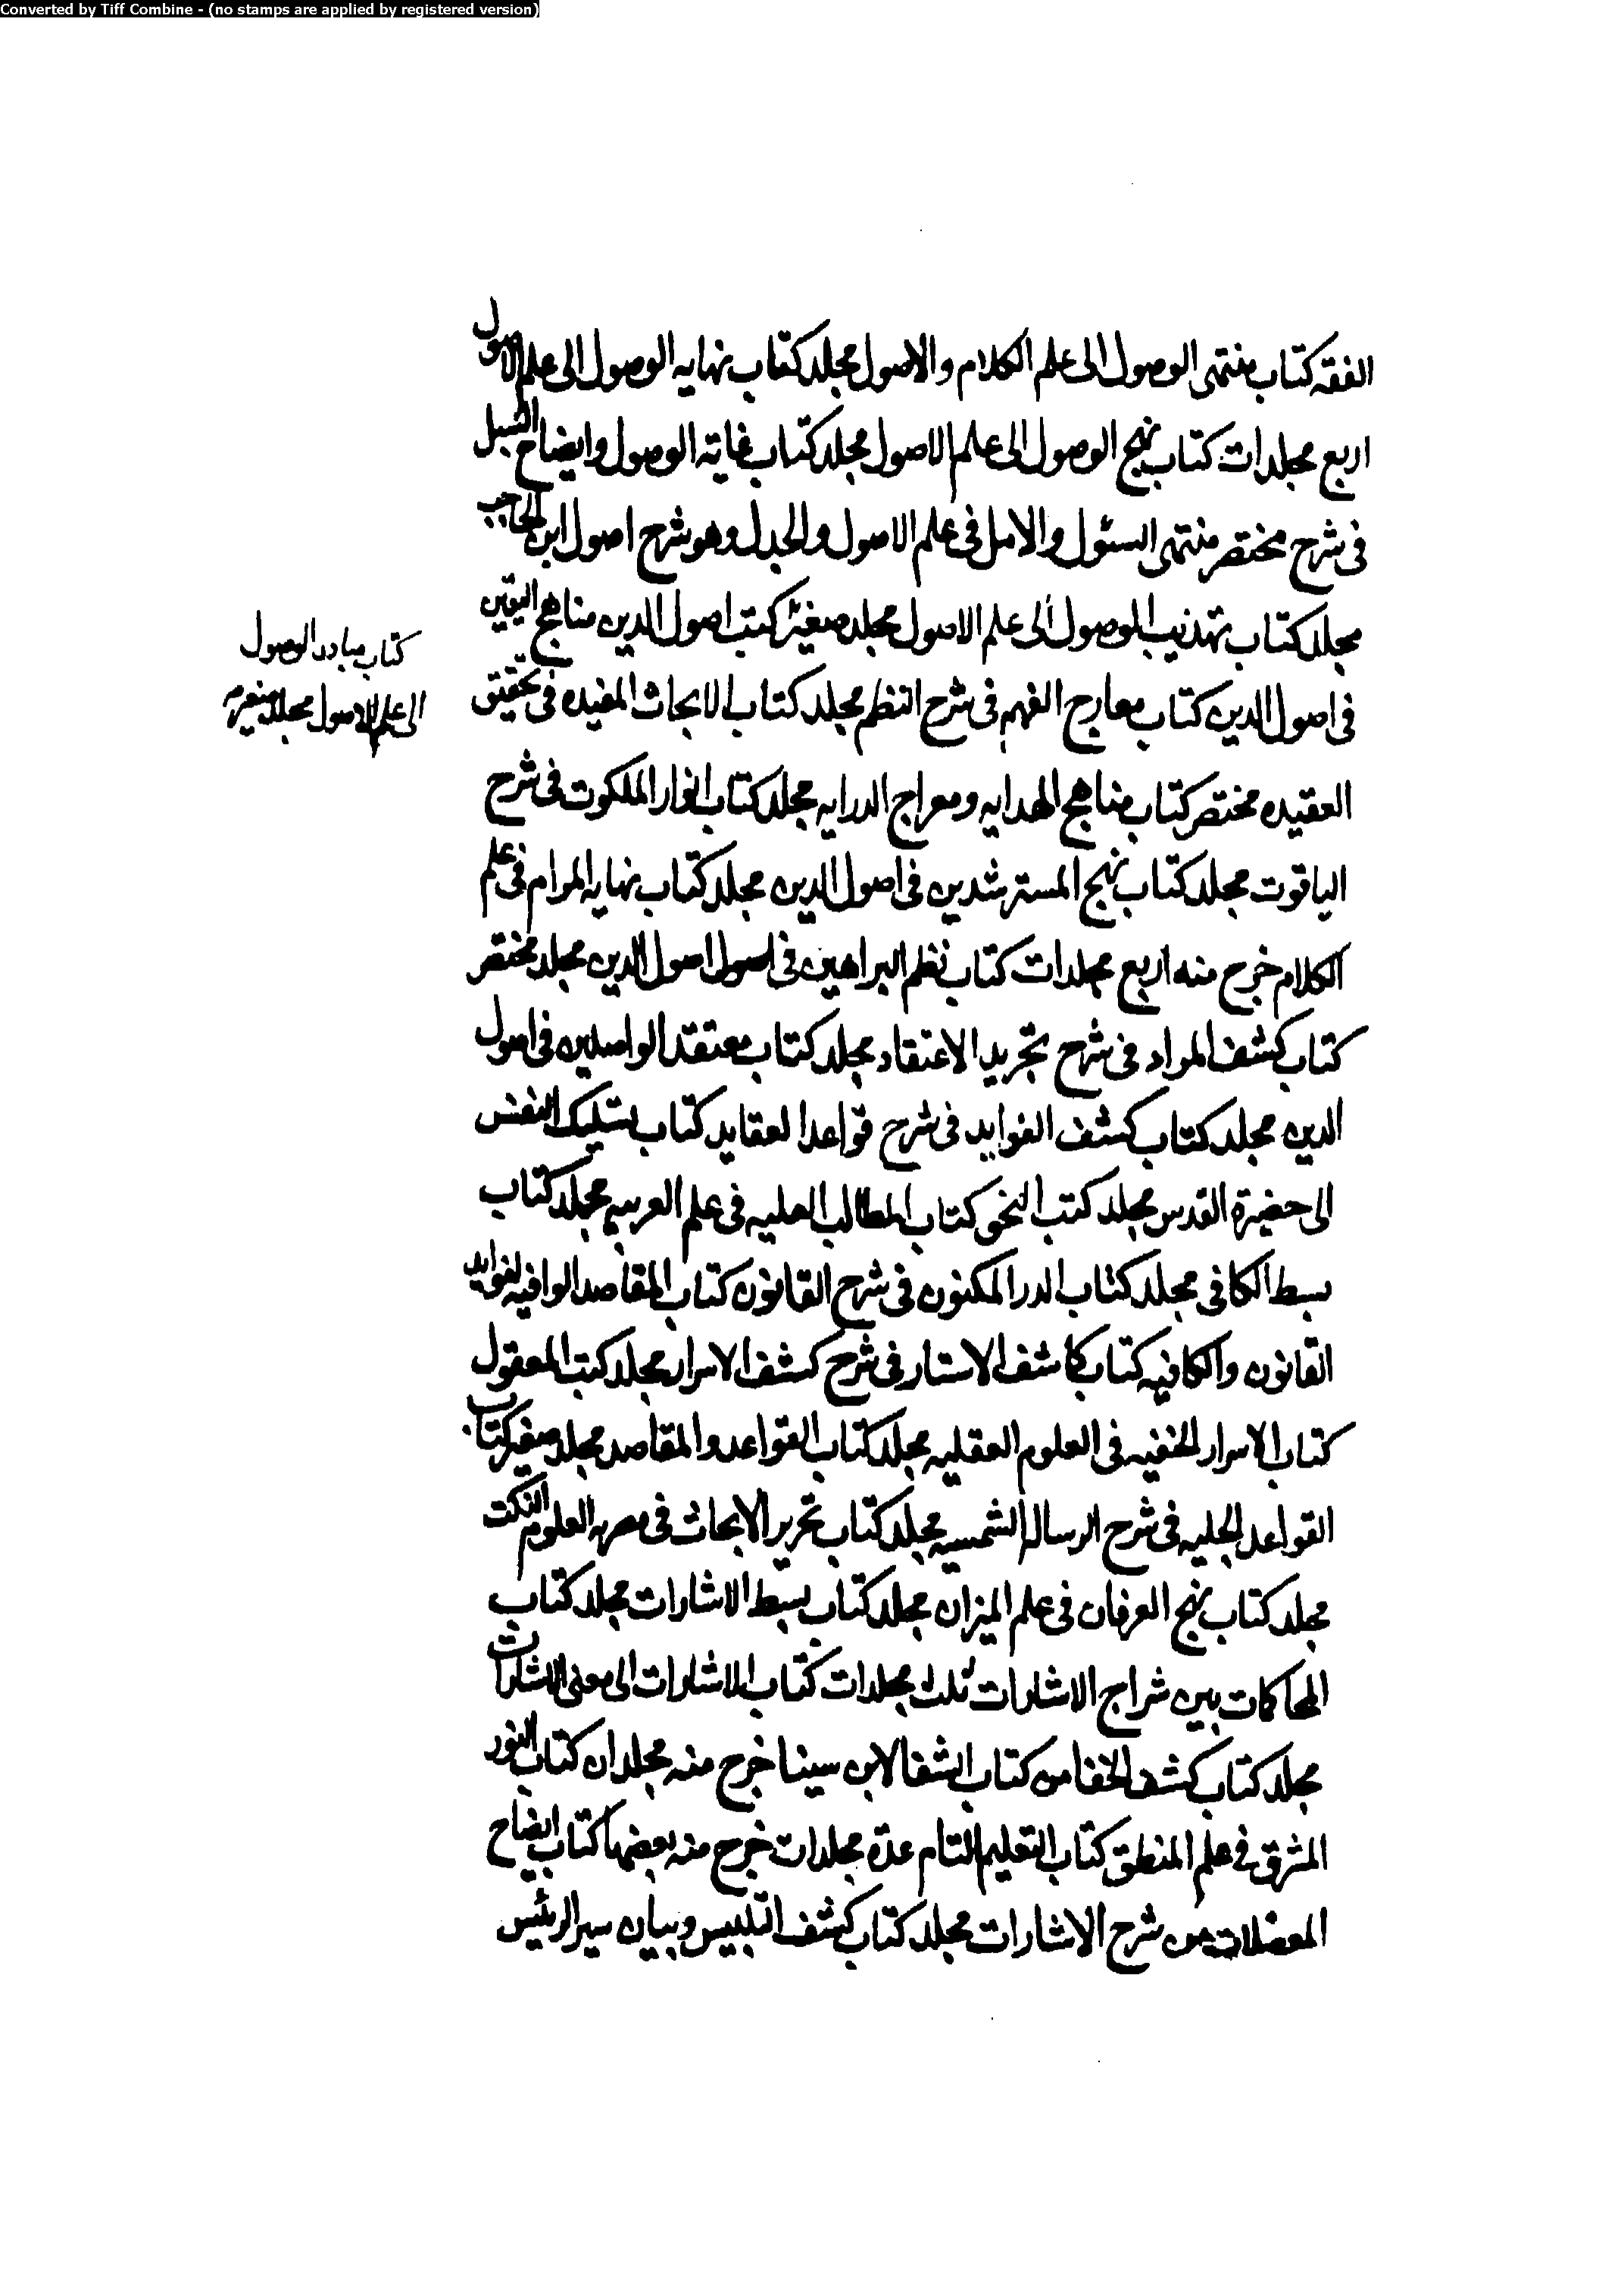 Converted by Tiff Combine - (no stamps are applied by registered version)
الفقه كتاب منتهى الوصول الى علم الكلام والاصول مجلد كتاب نهايه الوصول الى علم الاصول
اربع مجلدات كتاب نهج الوصول الى علم الاصول مجلد كتاب غاية الوصول وايضاح السبل
فى شرح مختصر منتهى السئول والامل فى علم الاصول والجدل وهو شرح اصول ابن الحاجب
مجلد كتاب تهذيب الوصول الى علم الاصول مجلد صغير كتب اصول الدين مناهج اليقين
كتاب مبادى الوصول
الى علم الاصول مجلد صغير
فى اصول الدين كتاب معارج الفهم فى شرح النظم مجلد كتاب الابحاث المفيده فى تحقيق
العقيده مختصر كتاب مناهج الهدايه ومعراج الدرايه مجلد كتاب انوار الملكوت فى شرح
الياقوت مجلد كتاب نهج المسترشدين فى اصول الدين مجلد كتاب نهايه المرام فى علم
الكلام خرج منه اربع مجلدات كتاب نظم البراهين فى اصول الدين مجلد مختصر
كتاب كشف المراد فى شرح تجريد الاعتقاد مجلد كتاب معتقد الواصلين فى اصول
الدين مجلد كتاب كشف الفوايد فى شرح قواعد العقايد كتاب تسليك النفس
الى حضيرة القدس مجلد كتب النحو كتاب المطالب العليه فى علم العربيه مجلد كتاب
بسط الكافى مجلد كتاب الدر المكنون فى شرح القانون كتاب المقاصد الوافيه لفوايد
القانون والكافيه كتاب كاشف الاستار فى شرح كشف الاسرار مجلد كتب المعقول
كتاب الاسرار الخفيه فى العلوم العقليه مجلد كتاب القواعد والمقاصد مجلد صغير كتاب
القواعد الجليه فى شرح الرساله الشمسيه مجلد كتاب تحرير الابحاث فى معرفه العلوم الثلث
مجلد كتاب نهج العرفان فى علم الميزان مجلد كتاب بسط الاشارات مجلد كتاب
المحاكمات بين شراح الاشارات ثلث مجلدات كتاب الاشارات الى معنى الاشارات
مجلد كتاب كشف الخفا من كتاب الشفا لابن سينا خرج منه مجلدان كتاب النور
المشرق فى علم المنطق كتاب التعليم التام عدة مجلدات خرج منه بعضها كتاب ايضاح
المعضلات من شرح الاشارات مجلد كتاب كشف التلبيس وبيان سير الرئيس